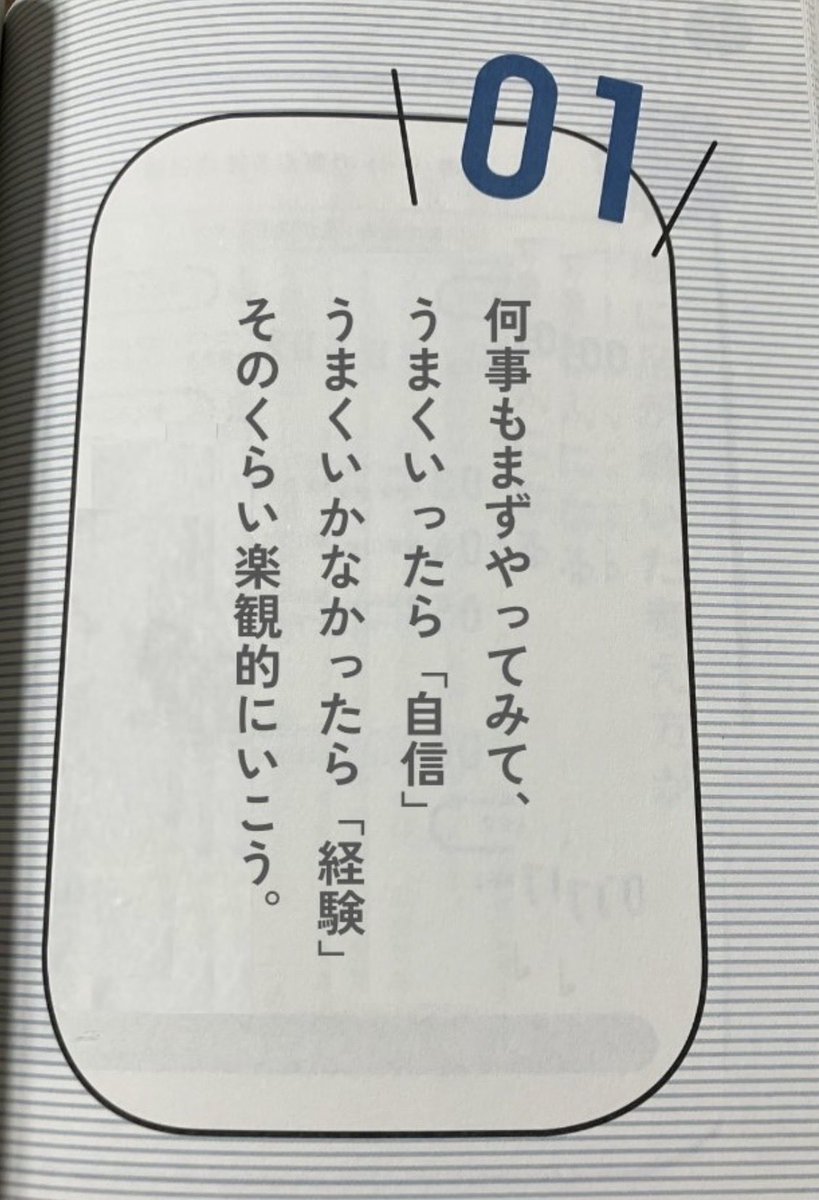 01
何事もまずやってみて、
うまくいったら「自信」
うまくいかなかったら「経験」
そのくらい楽観的にいこう。